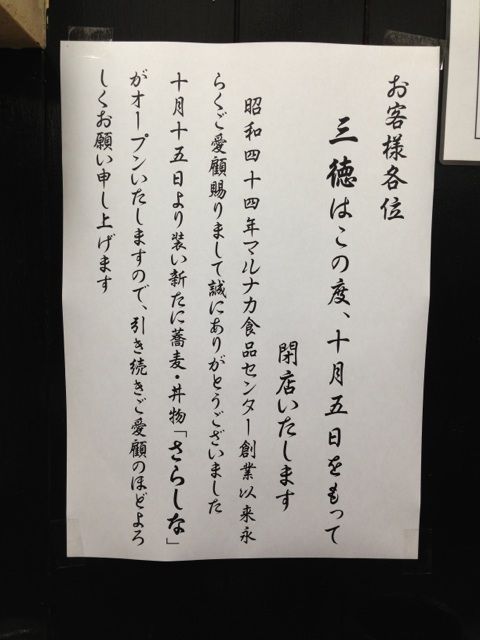 お客様各位
三徳はこの度、十月五日をもって
閉店いたします
昭和四十四年マルナカ食品センター創業以来永
らくご愛顧賜りまして誠にありがとうございました
十月十五日より装い新たに蕎麦・丼物「さらしな」
がオープンいたしますので、引き続きご愛顧のほどよろ
しくお願い申し上げます